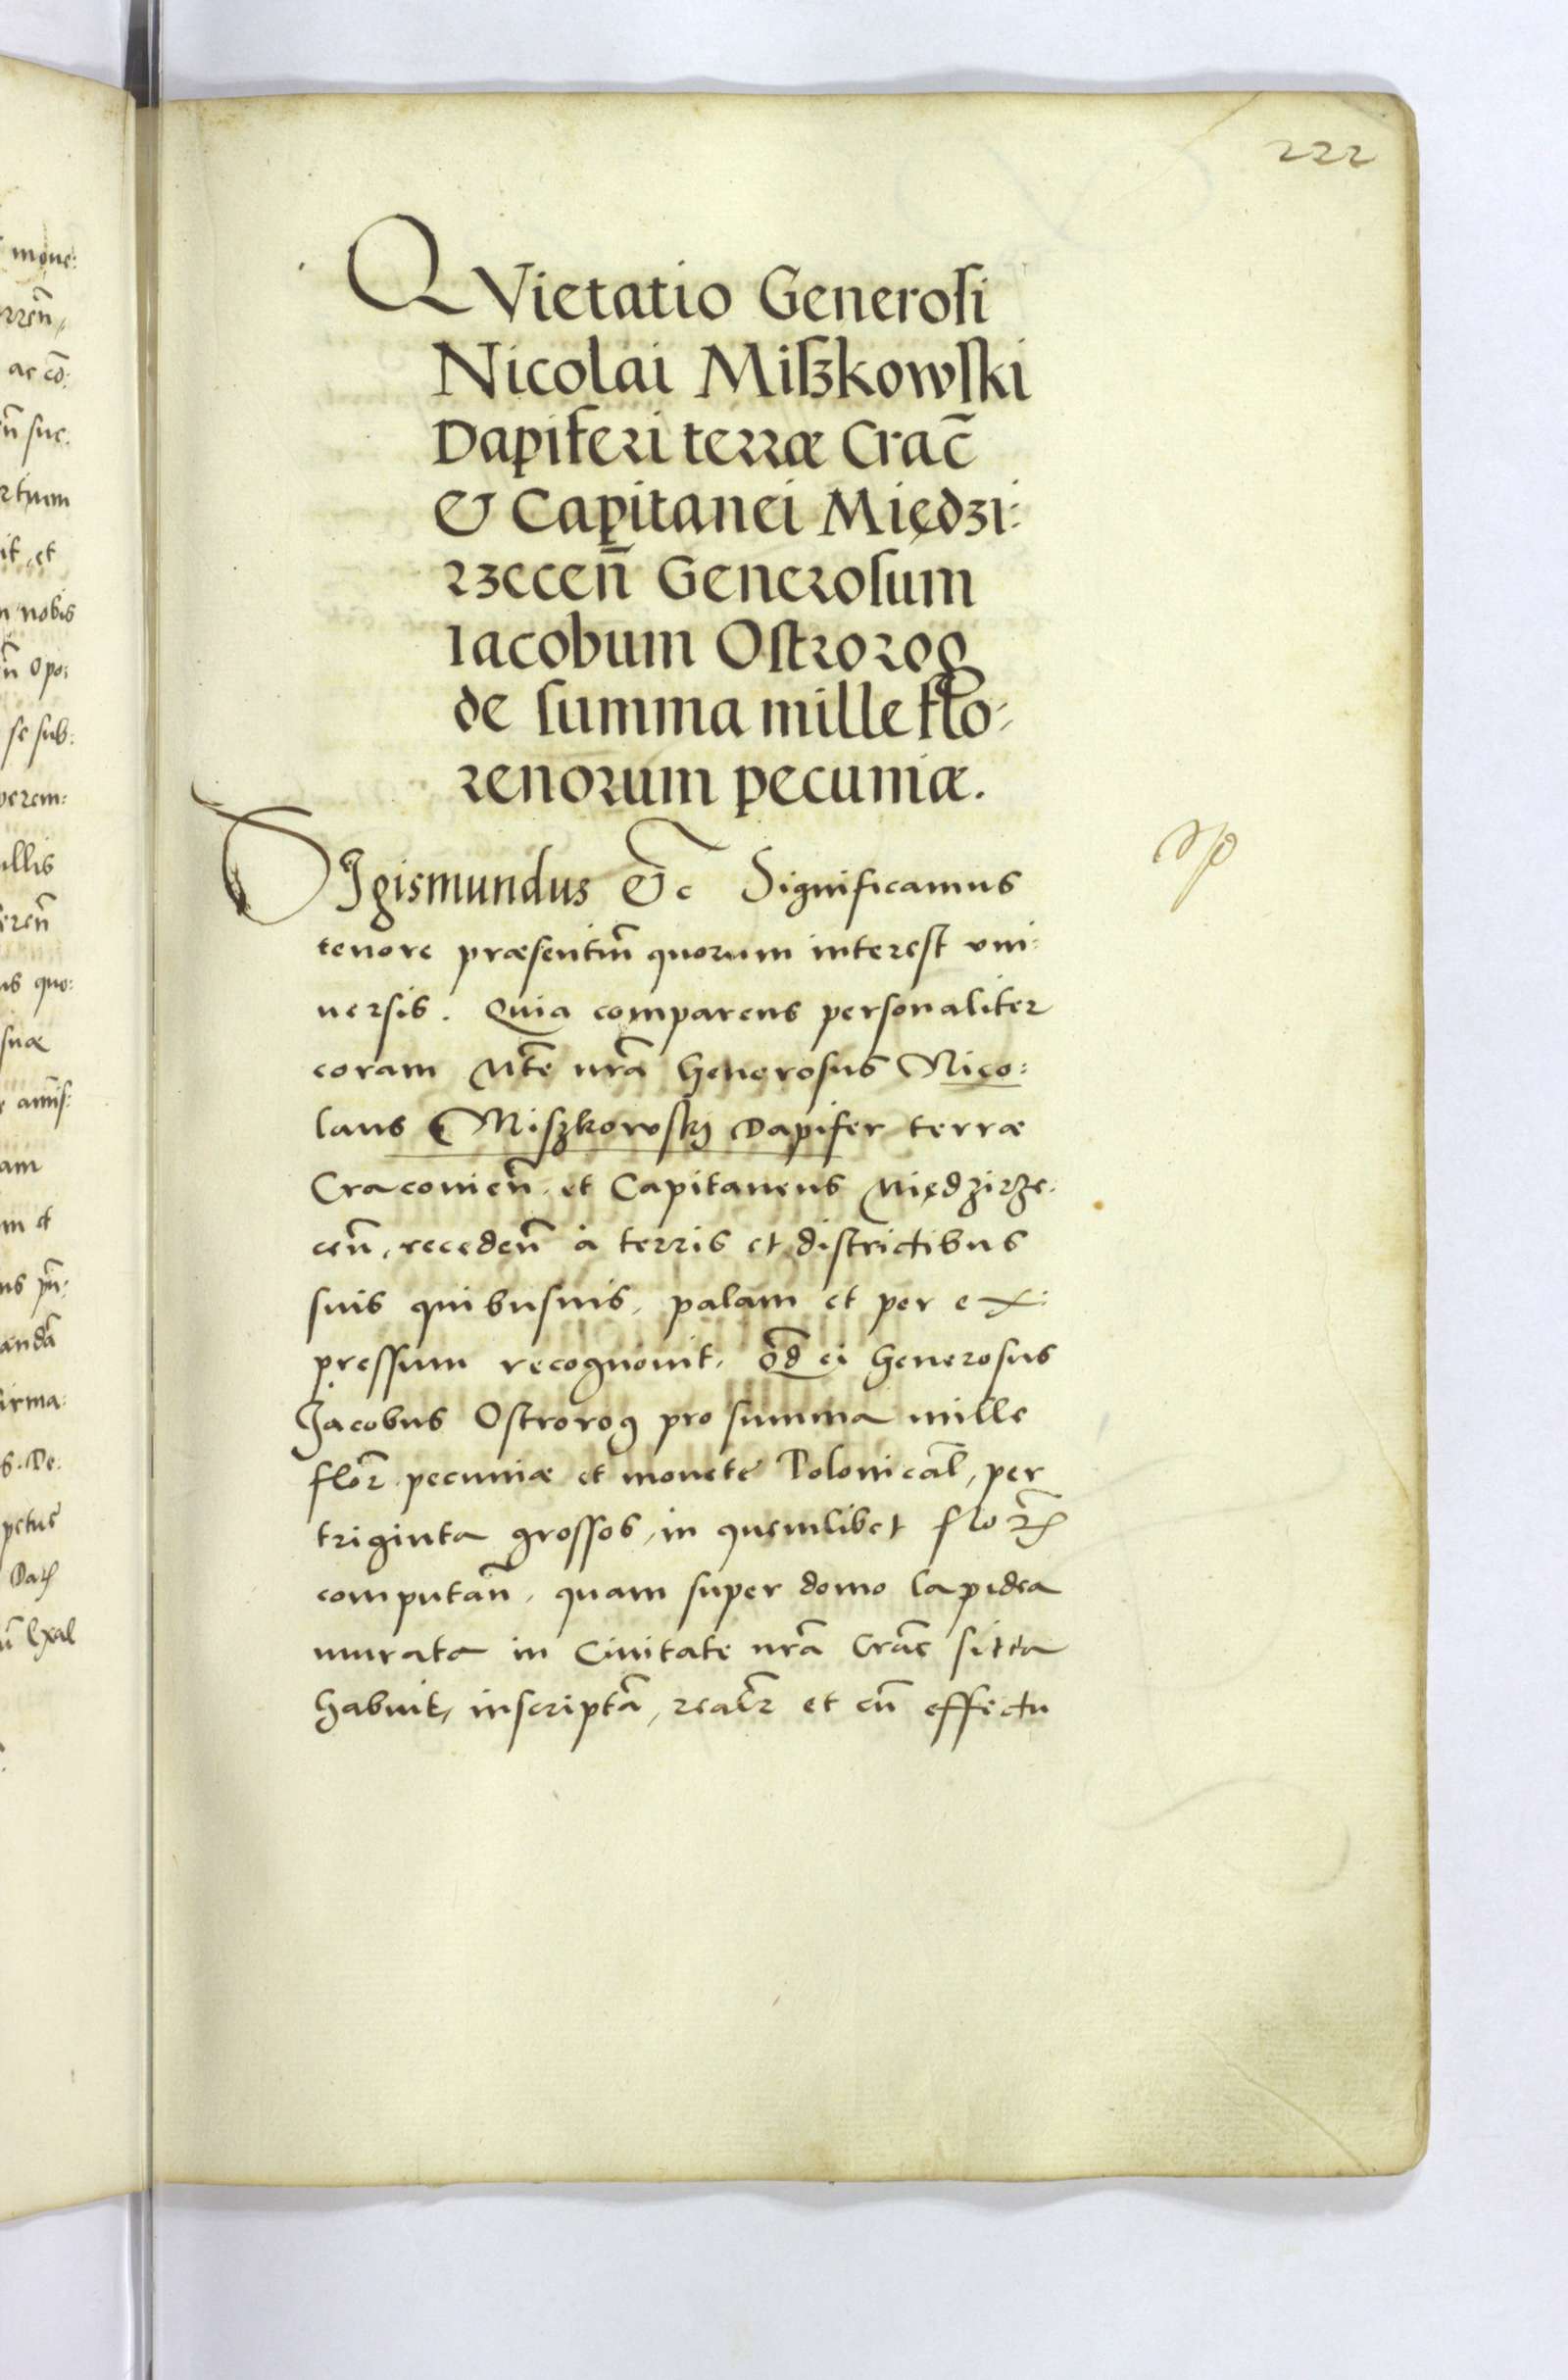 222
QVietatio Generosi
Nicolai Miszkowski
Dapiferi terræ Crac̄
& Capitanei Międzi:
rzeccen̄ Generosum
Iacobum Ostrorog
de summa mille flo:
renorum pecuniæ.
SIgismundus &c Significamus
tenore præsentiu̅ quorum interest vni:
uersis. Quia comparens personaliter
coram Mte nr̄a Generosus Nico:
laus Miszkowskÿ Dapifer terræ
Cracouien̄. et Capitaneus Międzirze:
cen̄, receden̄ à terris et districtibus
suis quibusuis, palam et per ex:
pressum recognouit, q̄d ei Generosus
Jacobus Ostrorog pro summa mille
flor̄. pecuniæ et monete Polonical̄, per
triginta grossos, in quemlibet flor̄
computan̄, quam super domo lapidea
murata in Ciuitate nr̄a Crac̄ sitta
habuit, inscriptā, realr̄ et cū effectu
mone:
ac cō:
n̄ suc:
rtuum
it, et
nobis
n̄ Opo:
se sub:
uerem:
ullis
eren̄
us quo:
suæ
am
m et
andā
irma:
s. De:
petue
Dat